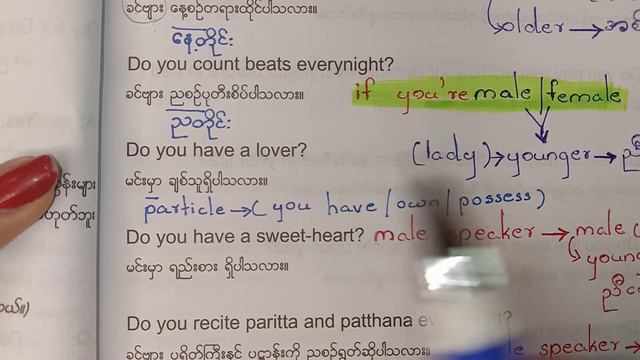 ခင်ဗျား နေ့စဉ်တရားထိုင်ပါသလား။
older → အစ်
နေ့တိုင်း
Do you count beats everynight?
ခင်ဗျား ညစဉ်ပုတီးစိပ်ပါသလား။
if you're male/female
ညတိုင်း
Do you have a lover?
(lady) → younger → ညီ
မင်းမှာ ချစ်သူရှိပါသလား။
particle → (you have/own/possess)
ဟုတ်ဘူး
Do you have a sweet-heart?
male speaker → male (
မင်းမှာ ရည်းစား ရှိပါသလား။
young
Do you recite paritta and patthana ev
?
ခင်ဗျား ပရိတ်ကြီးနှင့် ပဋ္ဌာန်းကို ညစဉ်ရွတ်ဆိုပါသလား။
speaker →